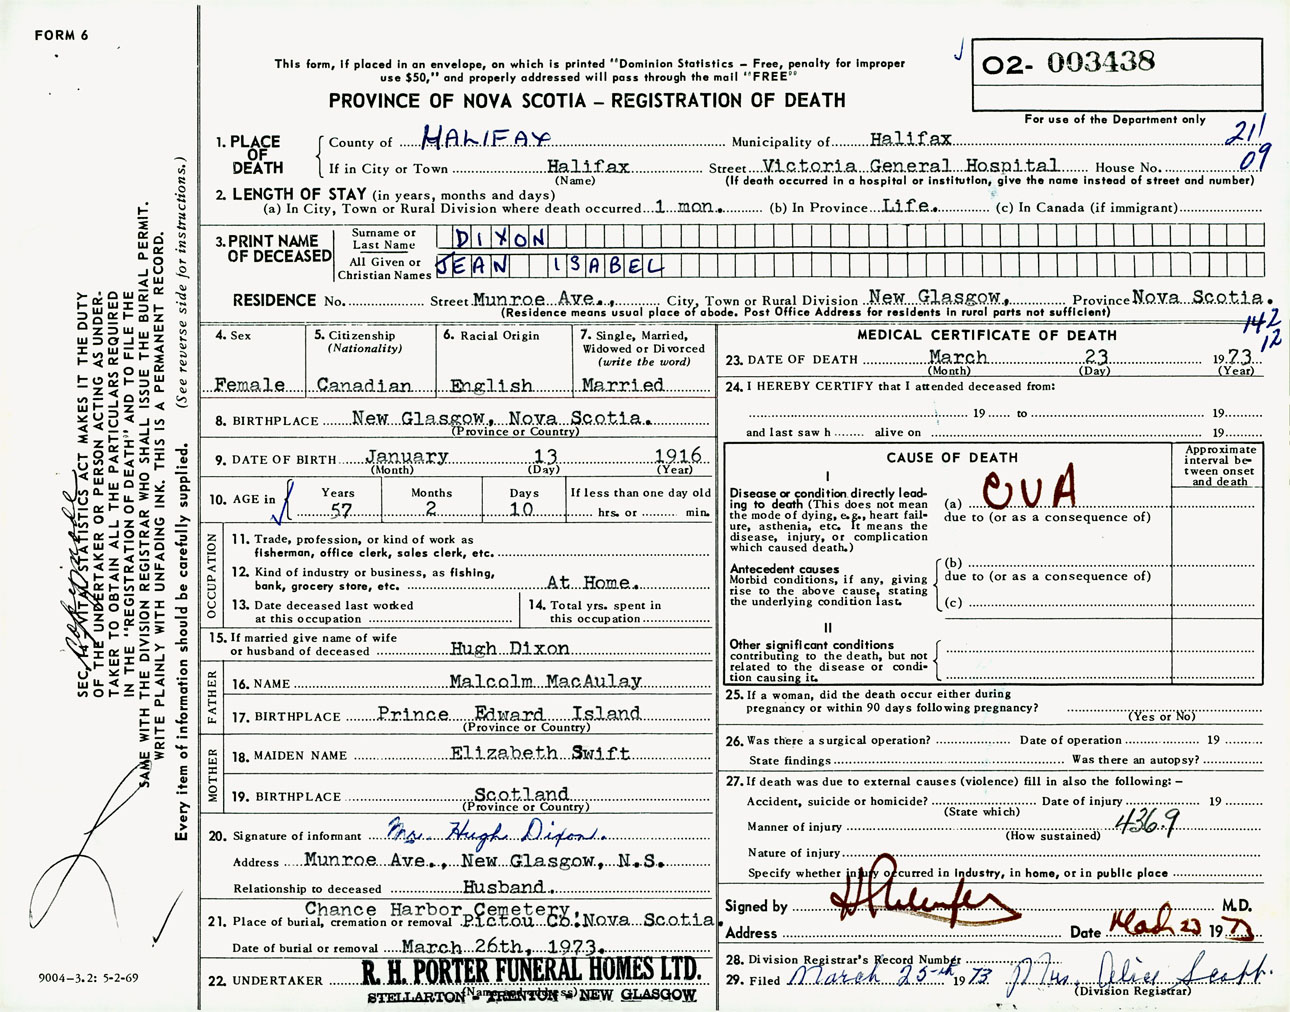 FORM 6
This form, if placed in an envelope, on which is printed "Dominion Statistics – Free, penalty for improper
use $50," and properly addressed will pass through the mail "FREE"
PROVINCE OF NOVA SCOTIA – REGISTRATION OF DEATH
02- 003438
For use of the Department only
211
09
1. PLACE OF DEATH
County of HALIFAX Municipality of Halifax
If in City or Town Halifax Street Victoria General Hospital House No.
(Name) (If death occurred in a hospital or institution, give the name instead of street and number)
2. LENGTH OF STAY (in years, months and days)
(a) In City, Town or Rural Division where death occurred 1 mon. (b) In Province Life. (c) In Canada (if immigrant)
3. PRINT NAME OF DECEASED
Surname or Last Name DIXON
All Given or Christian Names JEAN ISABEL
RESIDENCE No. Street Munroe Ave., City, Town or Rural Division New Glasgow, Province Nova Scotia.
(Residence means usual place of abode. Post Office Address for residents in rural parts not sufficient)
142
12
4. Sex
Female
5. Citizenship
(Nationality)
Canadian
6. Racial Origin
English
7. Single, Married,
Widowed or Divorced
(write the word)
Married
8. BIRTHPLACE New Glasgow, Nova Scotia.
(Province or Country)
9. DATE OF BIRTH January 13 1916
(Month) (Day) (Year)
10. AGE in
Years Months Days If less than one day old
57 2 10 hrs. or min.
OCCUPATION
11. Trade, profession, or kind of work as
fisherman, office clerk, sales clerk, etc.
12. Kind of industry or business, as fishing,
bank, grocery store, etc. At Home.
13. Date deceased last worked
at this occupation
14. Total yrs. spent in
this occupation
15. If married give name of wife
or husband of deceased Hugh Dixon
FATHER
16. NAME Malcolm MacAulay
17. BIRTHPLACE Prince Edward Island
(Province or Country)
MOTHER
18. MAIDEN NAME Elizabeth Swift
19. BIRTHPLACE Scotland
(Province or Country)
20. Signature of informant Mrs. Hugh Dixon.
Address Munroe Ave., New Glasgow, N.S.
Relationship to deceased Husband.
Chance Harbor Cemetery,
21. Place of burial, cremation or removal Pictou Co. Nova Scotia.
Date of burial or removal March 26th, 1973.
22. UNDERTAKER R. H. PORTER FUNERAL HOMES LTD.
(Name and address)
STELLARTON - TRENTON - NEW GLASGOW
MEDICAL CERTIFICATE OF DEATH
23. DATE OF DEATH March 23 1973
(Month) (Day) (Year)
24. I HEREBY CERTIFY that I attended deceased from:
19 to 19
and last saw h alive on 19
CAUSE OF DEATH
Approximate
interval be-
tween onset
and death
I
Disease or condition directly lead-
ing to death (This does not mean
the mode of dying, e.g., heart fail-
ure, asthenia, etc. It means the
disease, injury, or complication
which caused death.)
(a) CVA
due to (or as a consequence of)
Antecedent causes
Morbid conditions, if any, giving
rise to the above cause, stating
the underlying condition last.
(b)
due to (or as a consequence of)
(c)
II
Other significant conditions
contributing to the death, but not
related to the disease or condi-
tion causing it.
25. If a woman, did the death occur either during
pregnancy or within 90 days following pregnancy?
(Yes or No)
26. Was there a surgical operation? Date of operation 19
State findings Was there an autopsy?
27. If death was due to external causes (violence) fill in also the following: –
Accident, suicide or homicide? Date of injury 19
(State which)
Manner of injury 436.9
(How sustained)
Nature of injury
Specify whether injury occurred in industry, in home, or in public place
Signed by M.D.
Address Date March 23 1973
28. Division Registrar's Record Number
29. Filed March 25th 1973 Mrs. Alice Scott.
(Division Registrar)
SEC. 14 VITAL STATISTICS ACT MAKES IT THE DUTY
OF THE UNDERTAKER OR PERSON ACTING AS UNDER-
TAKER TO OBTAIN ALL THE PARTICULARS REQUIRED
IN THE "REGISTRATION OF DEATH" AND TO FILE THE
SAME WITH THE DIVISION REGISTRAR WHO SHALL ISSUE THE BURIAL PERMIT.
WRITE PLAINLY WITH UNFADING INK. THIS IS A PERMANENT RECORD.
Every item of information should be carefully supplied. (See reverse side for instructions.)
9004-3.2: 5-2-69